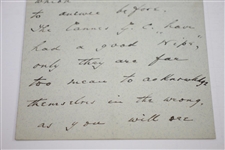 to answer before.
The Tanner J. C. have
had a good
only they are far
too mean to acknowledge
themselves in the wrong.
as you will see